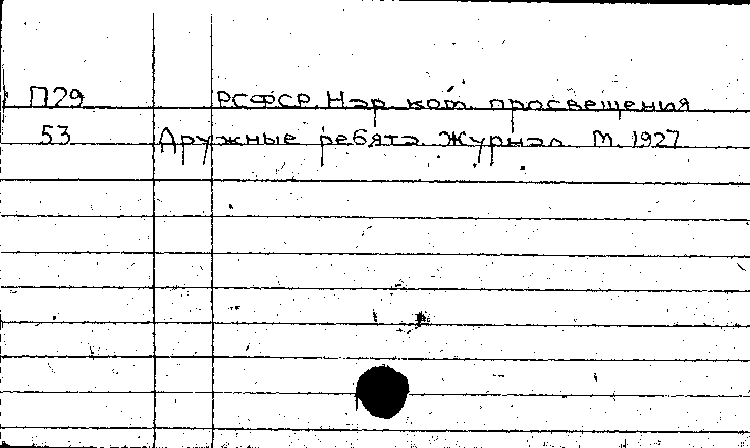 П29 РСФСР. Нар. ком. просвещения
53 Дружные ребята. Журнал. М. 1927